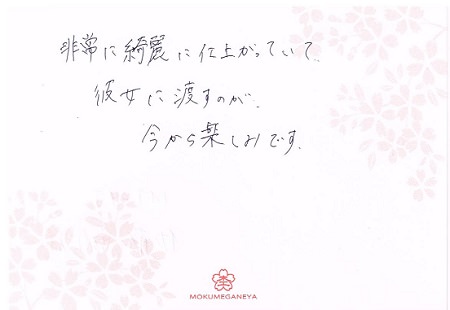 非常に綺麗に仕上がっていて、
彼女に渡すのが、
今から楽しみです。
MOKUMEGANEYA